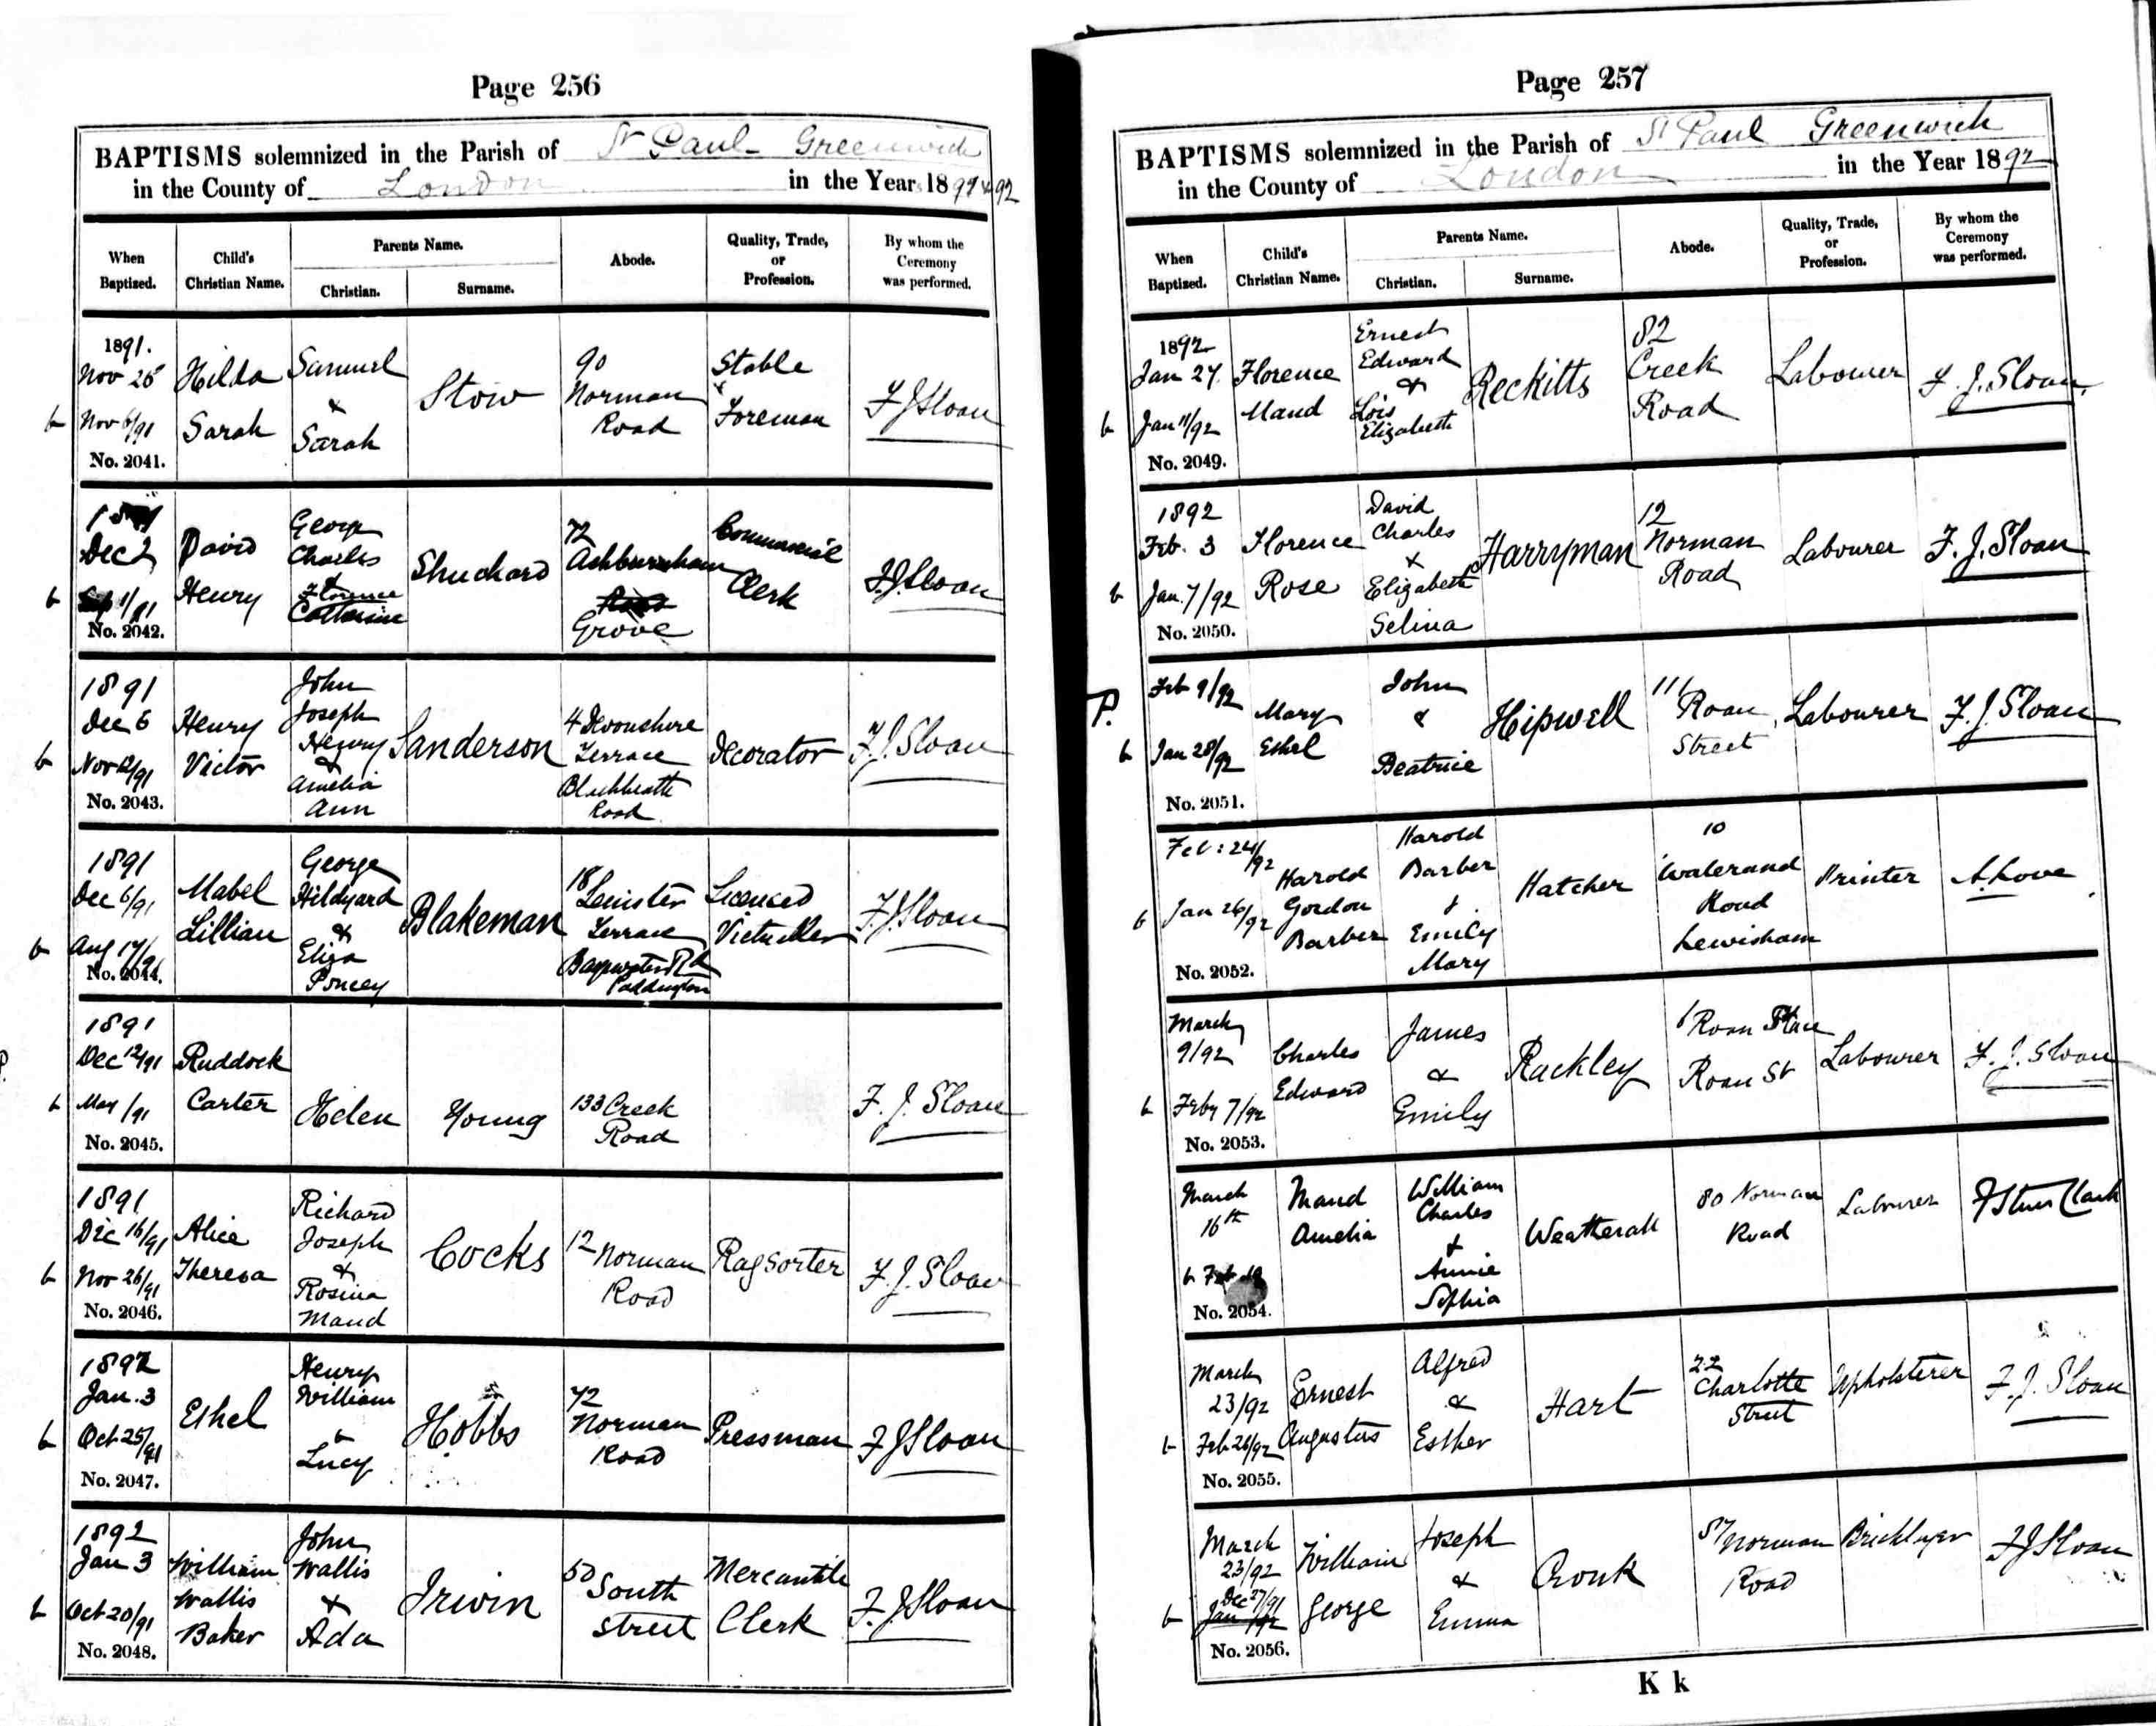 Page 256
BAPTISMS solemnized in the Parish of St Paul Greenwich
in the County of London in the Year 1891 & 92
When Baptized.
Child's Christian Name.
Parents Name.
Christian.
Surname.
Abode.
Quality, Trade, or Profession.
By whom the Ceremony was performed.
1891.
Nov 25
b Nov 6/91
No. 2041.
Hilda
Sarah
Samuel
&
Sarah
Stow
90
Norman
Road
Stable
Foreman
F J Sloan
Dec 2
b
No. 2042.
David
Henry
George
Charles
&
Florence
Catherine
Shuchard
72
Ashburnham
Road
Grove
Commercial
Clerk
F. J. Sloan
1891
Dec 6
b Nov 12/91
No. 2043.
Henry
Victor
John
Joseph
Henry
&
Amelia
Ann
Sanderson
4 Devonshire
Terrace
Blackheath
Road
Decorator
F. J. Sloan
1891
Dec 6/91
b Aug 17/91
No. 2044.
Mabel
Lillian
George
Hildyard
&
Eliza
Poncey
Blakeman
18
Leinster
Terrace
Bayswater Rd
Paddington
Licensed
Victualler
F. J. Sloan
1891
Dec 12/91
b May /91
No. 2045.
Ruddock
Carter
Helen
Young
133 Creek
Road
F. J. Sloan
1891
Dec 16/91
b Nov 26/91
No. 2046.
Alice
Theresa
Richard
Joseph
&
Rosina
Maud
Cocks
12 Norman
Road
Rag Sorter
F. J. Sloan
1892
Jan. 3
b Oct 25/91
No. 2047.
Ethel
Henry
William
&
Lucy
Hobbs
72
Norman
Road
Pressman
F J Sloan
1892
Jan 3
b Oct 20/91
No. 2048.
William
Wallis
Baker
John
Wallis
&
Ada
Irwin
50
South
Street
Mercantile
Clerk
F. J. Sloan
Page 257
BAPTISMS solemnized in the Parish of St Paul Greenwich
in the County of London in the Year 1892
When Baptized.
Child's Christian Name.
Parents Name.
Christian.
Surname.
Abode.
Quality, Trade, or Profession.
By whom the Ceremony was performed.
1892
Jan 27.
b Jan 11/92
No. 2049.
Florence
Maud
Ernest
Edward
&
Lois
Elizabeth
Reckitts
82
Creek
Road
Labourer
F. J. Sloan
1892
Feb. 3
b Jan. 7/92
No. 2050.
Florence
Rose
David
Charles
&
Elizabeth
Selina
Harryman
12
Norman
Road
Labourer
F. J. Sloan
P.
Feb 9/92
b Jan 28/92
No. 2051.
Mary
Ethel
John
&
Beatrice
Hipwell
111
Roan
Street
Labourer
F. J. Sloan
Feb: 24/92
b Jan 26/92
No. 2052.
Harold
Gordon
Barber
Harold
Barber
&
Emily
Mary
Hatcher
10
Walerand
Road
Lewisham
Printer
A. Love
March
9/92
b Feby 7/92
No. 2053.
Charles
Edward
James
&
Emily
Rackley
1 Roan Place
Roan St
Labourer
F. J. Sloan
March
16th
b Feb
No. 2054.
Maud
Amelia
William
Charles
&
Annie
Sophia
Weatherall
80 Norman
Road
Labourer
Clark
March
23/92
b Feb 26/92
No. 2055.
Ernest
Augustus
Alfred
&
Esther
Hart
22
Charlotte
Street
Upholsterer
F. J. Sloan
March
23/92
Dec 27/91
b Jan /92
No. 2056.
William
George
Joseph
&
Emma
Cronk
57 Norman
Road
Bricklayer
F J Sloan
K k